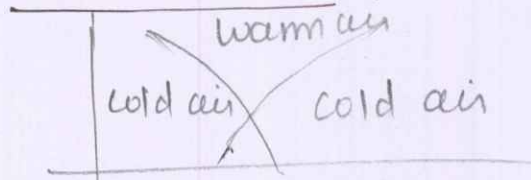 warm air
cold air cold air